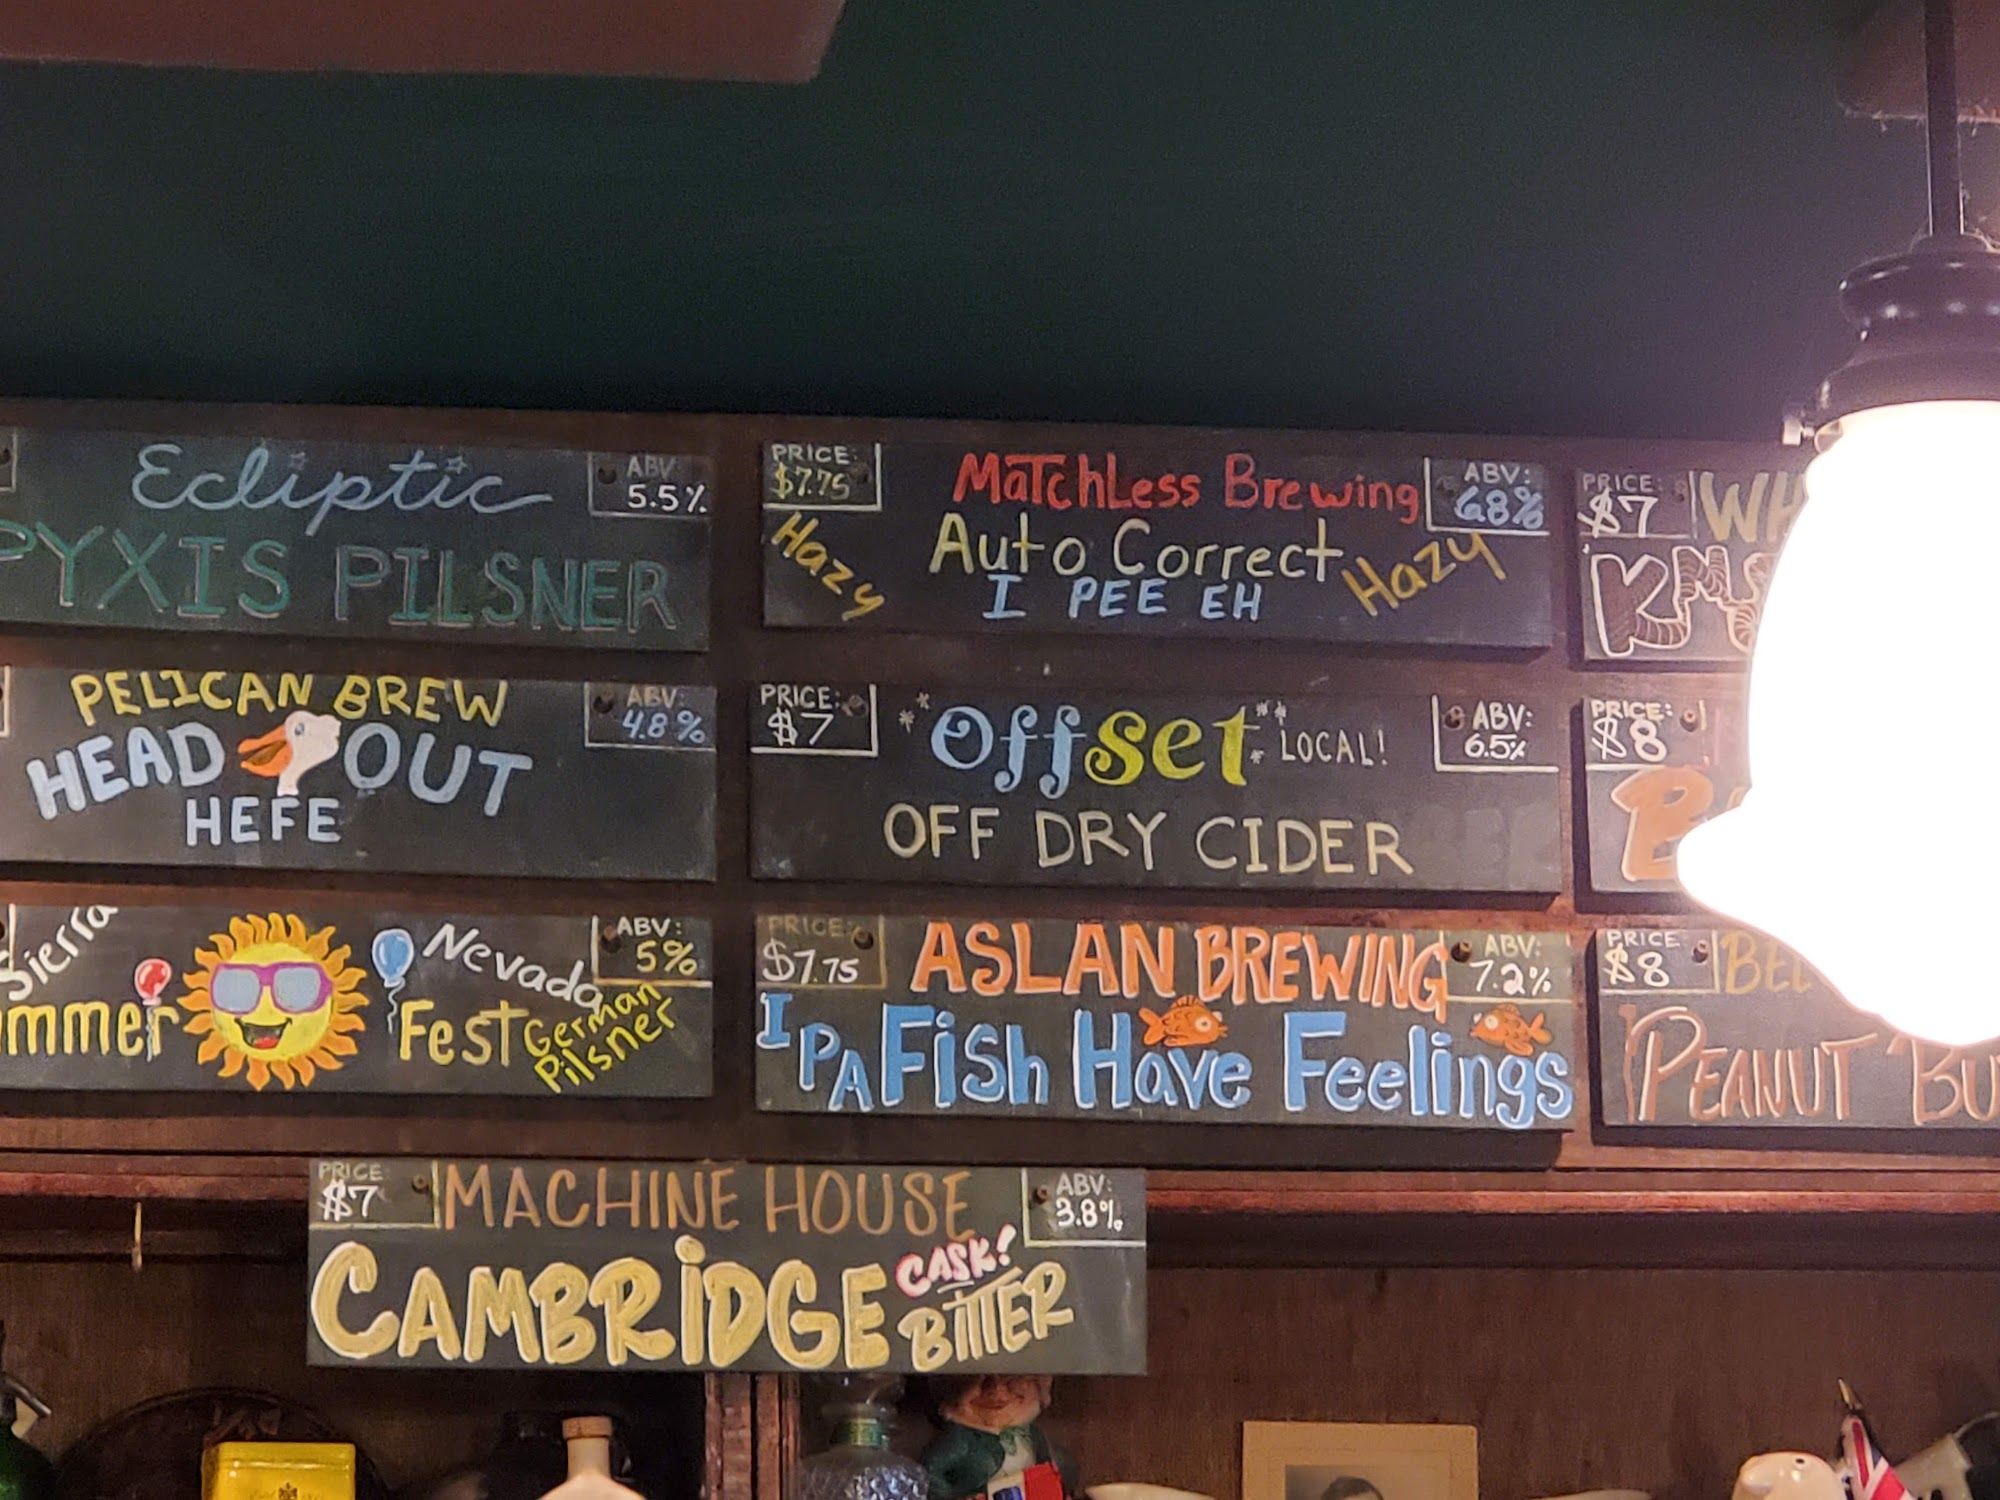 Ecliptic
ABV
5.5%
PYXIS PILSNER
PRICE:
$7.75
MaTchLess Brewing
ABV:
6.8%
Hazy
Auto Correct
Hazy
I PEE EH
PRICE:
$7
PELICAN BREW
ABV:
4.8%
HEAD OUT
HEFE
PRICE:
$7
Offset
LOCAL!
ABV:
6.5%
OFF DRY CIDER
PRICE:
$8
Sierra
Nevada
ABV:
5%
Fest
German
Pilsner
PRICE:
$7.75
ASLAN BREWING
ABV:
7.2%
IPA Fish Have Feelings
PRICE
$8
PEANUT
PRICE
$7
MACHINE HOUSE
ABV:
3.8%
CAMBRiDGE
CASK!
BITTER